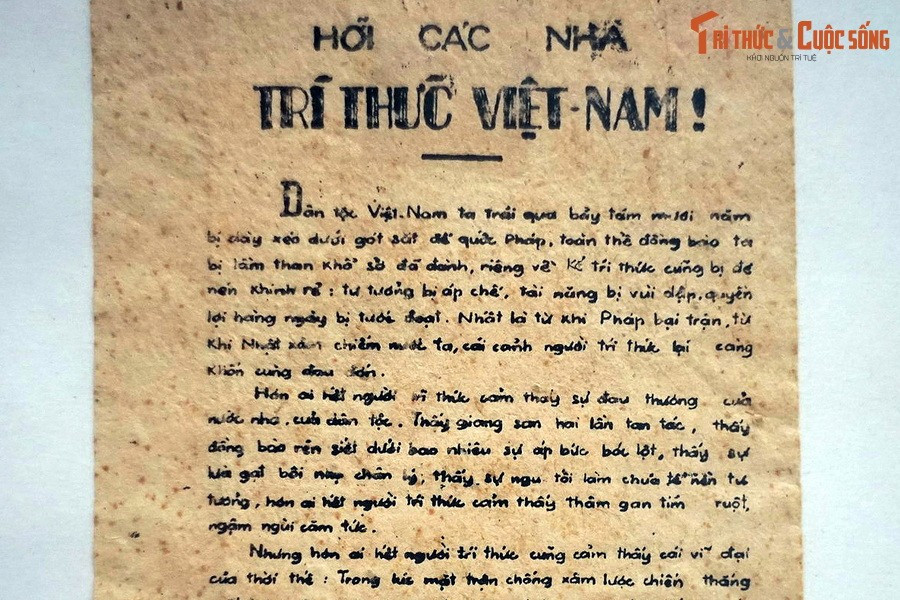 HỠI CÁC NHÀ
TRÍ THỨC VIỆT-NAM!
TRI THỨC & CUỘC SỐNG
KHƠI NGUỒN TRÍ TUỆ
Dân tộc Việt-Nam ta trải qua bảy tám mươi năm
bị dày xéo dưới gót sắt đế quốc Pháp, toàn thể đồng bào ta
bị lầm than khổ sở đã đành, riêng về kẻ trí thức cũng bị đè
nén khinh rẻ: tư tưởng bị áp chế, tài năng bị vùi dập, quyền
lợi hàng ngày bị tước đoạt. Nhất là từ khi Pháp bại trận, từ
khi Nhật xâm chiếm nước ta, cái cảnh người trí thức lại càng
khốn cùng đau đớn.
Hơn ai hết người trí thức cảm thấy sự đau thương của
nước nhà, của dân tộc. Thấy giang san hai lần tan tác, thấy
đồng bào rên siết dưới bao nhiêu sự áp bức bóc lột, thấy sự
lừa gạt bôi nhọ chân lý, thấy sự ngu tối làm chưa tê nền tư
tưởng, hơn ai hết người trí thức cảm thấy thâm gan tím ruột,
ngậm ngùi căm tức.
Nhưng hơn ai hết người trí thức cũng cảm thấy cái vĩ đại
của thời thế: Trong lúc mặt trận chống xâm lược chiến thắng